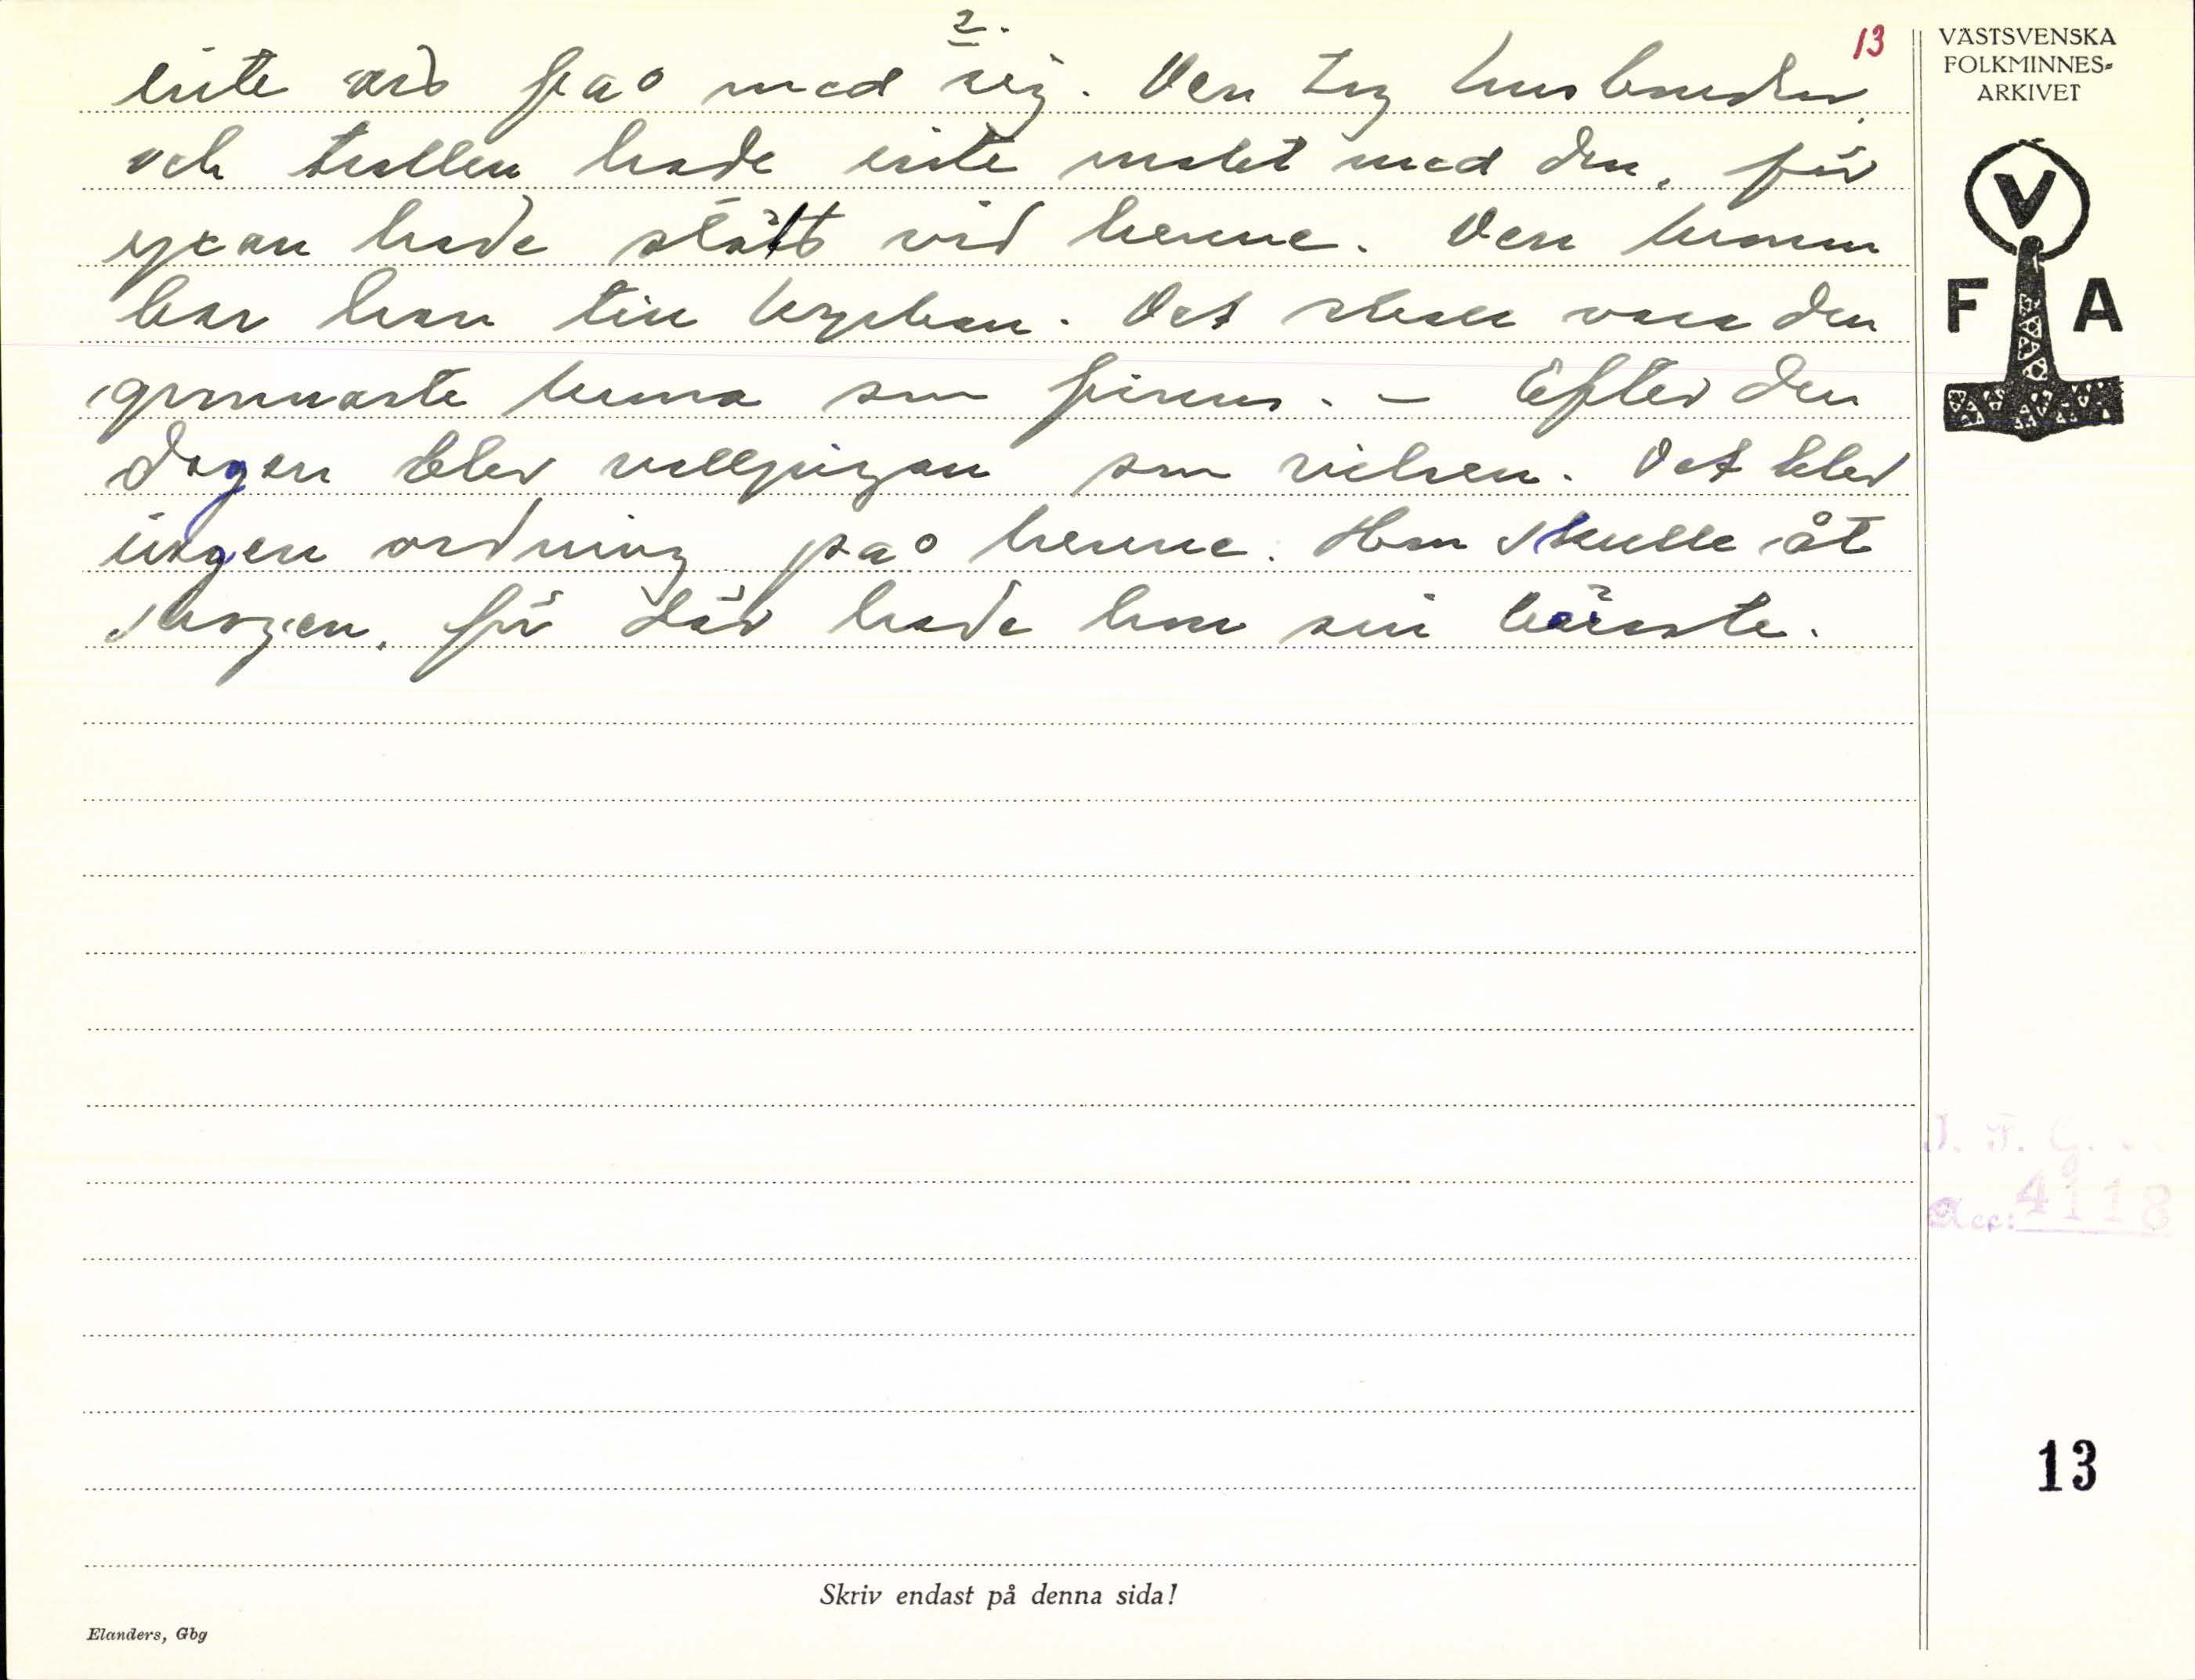 2.
13
inte ens få med sig. Den tog husbonden,
och trollen hade inte makt med den, för
yxan hade stått vid henne. Den humm
bar han till kyrkan. Det skall vara den
grannaste humma som finns. - Efter den
dagen blev vallpigan som vilsen. Det blev
ingen ordning på henne. Hon skulle åt
skogen, för där hade hon sin käraste.
VÄSTSVENSKA
FOLKMINNES-
ARKIVET
V
F A
I. F. G.
Acc: 4118
13
Skriv endast på denna sida!
Elanders, Gbg